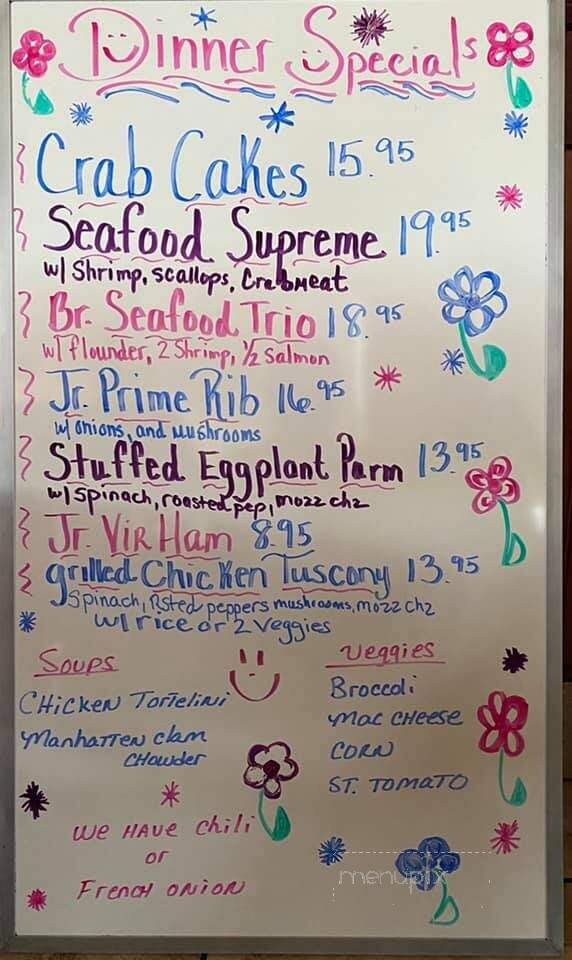 Dinner Specials
Crab Cakes 15.95
Seafood Supreme 19.95
w/ Shrimp, scallops, Crabmeat
Br. Seafood Trio 18.95
w/ flounder, 2 Shrimp, 1/2 Salmon
Jr. Prime Rib 16.95
w/ onions, and mushrooms
Stuffed Eggplant Parm 13.95
w/ Spinach, roasted pep, mozz chz
Jr. Vir Ham 8.95
grilled Chicken Tuscony 13.95
Spinach, Rsted peppers mushrooms, mozz chz
w/ rice or 2 Veggies
Soups
Chicken Tortelini
Manhatten clam
Chowder
Veggies
Broccoli
Mac CHeese
CORN
ST. TOMATO
We HAVE Chili
or
French onion
menupix